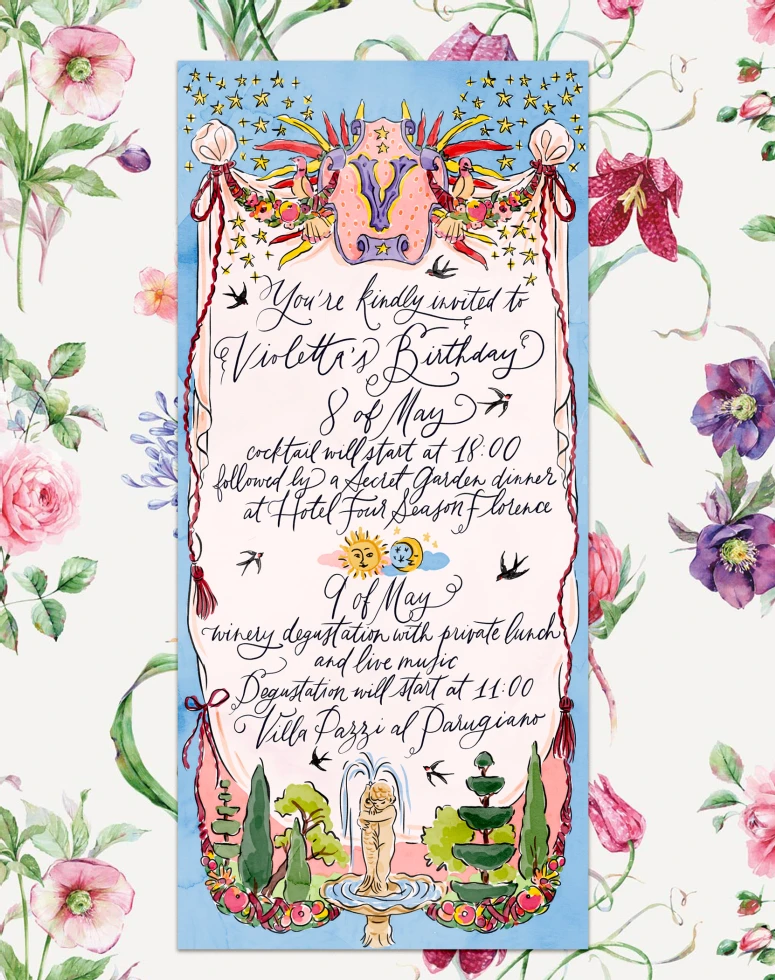 V
You're kindly invited to
Violetta's Birthday
8 of May
cocktail will start at 18:00
followed by a Secret Garden dinner
at Hotel Four Season Florence
9 of May
winery degustation with private lunch
and live music
Degustation will start at 11:00
Villa Pazzi al Parugiano